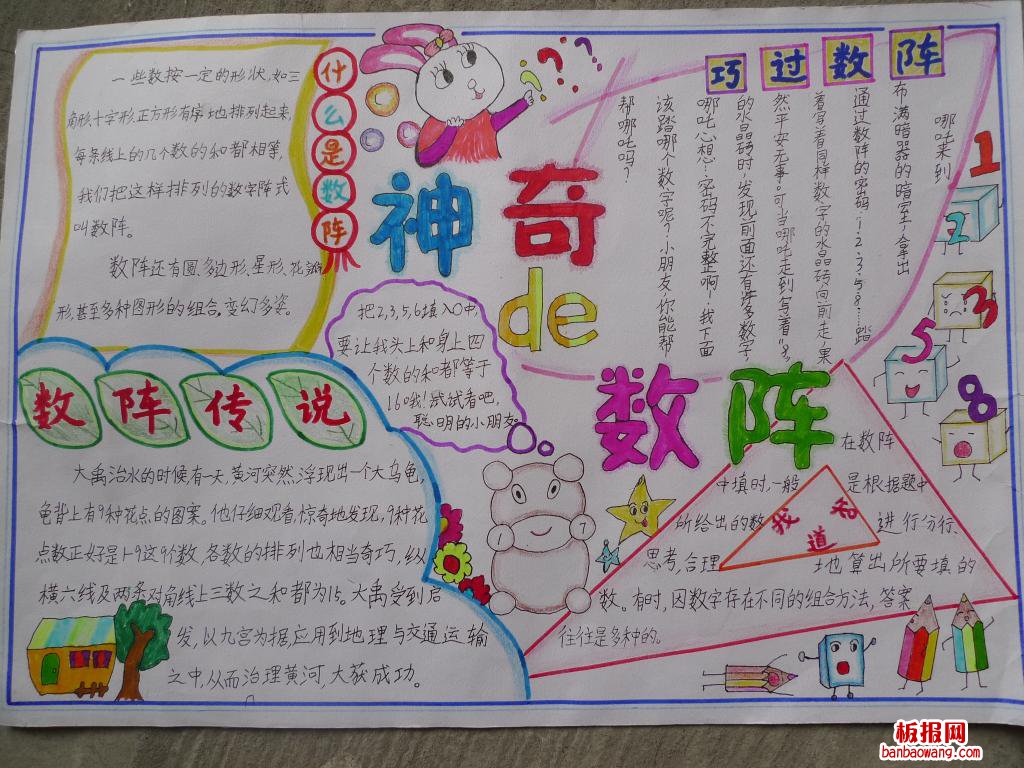 什么是数阵
一些数按一定的形状,如三
角形、十字形、正方形有序地排列起来,
每条线上的几个数的和都相等,
我们把这样排列的数字阵式
叫数阵。
数阵还有圆、多边形、星形、花瓣
形,甚至多种图形的组合。变幻多姿。
神奇
de
数阵
巧过数阵
哪吒来到
布满暗器的暗室,拿出
通过数阵的密码:1·2·3·5·8……踏
着写着同样数字的水晶砖向前走,果
然平安无事。可当哪吒走到写着“8”
的水晶砖时,发现前面还有许多数字,
哪吒心想:“密码不完整啊!我下面
该踏哪个数字呢?”小朋友,你能帮
帮哪吒吗?
1
2
3
5
8
把2,3,5,6填入○中,
要让我头上和身上四
个数的和都等于
16哦!试试看吧,
聪明的小朋友。
1
7
数阵传说
大禹治水的时候有一天,黄河突然浮现出一个大乌龟,
龟背上有9种花点的图案。他仔细观看,惊奇地发现,9种花
点数正好是1-9这9个数,各数的排列也相当奇巧,纵
横六线及两条对角线上三数之和都为15。大禹受到启
发,以九宫为据,应用到地理与交通运输
之中,从而治理黄河,大获成功。
我知道
在数阵
中填时,一般是根据题中
所给出的数进行分行、
思考,合理地算出所要填的
数。有时,因数字存在不同的组合方法,答案
往往是多种的。
板报网
banbaowang.com